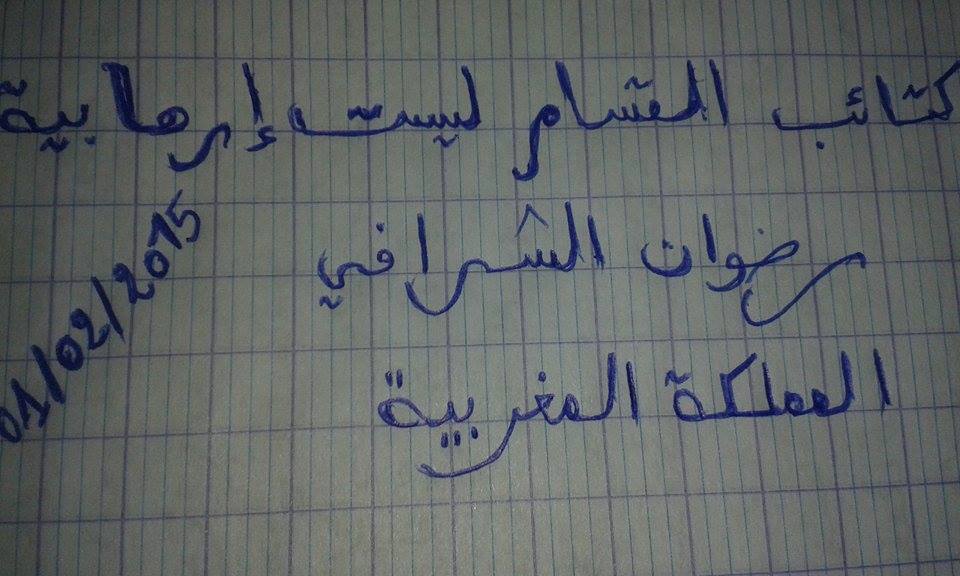 كتائب القسام ليست إرهابية
رضوان الشرافي
المملكة المغربية
01/02/2015